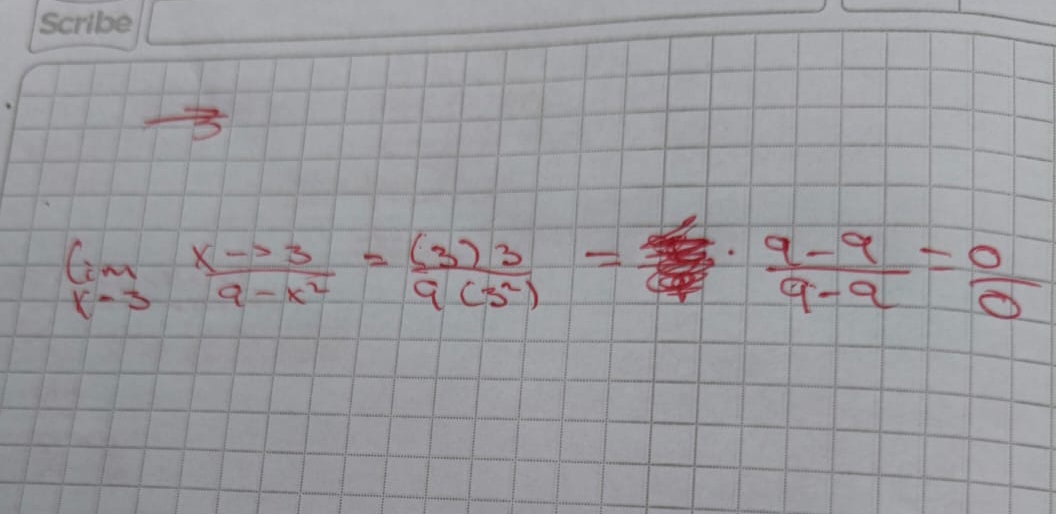 Scribe
→ 3
Lim x→3 / 9-x² = (3)3 / 9(3²) = · 9-9 / 9-9 = 0 / 0
x-3